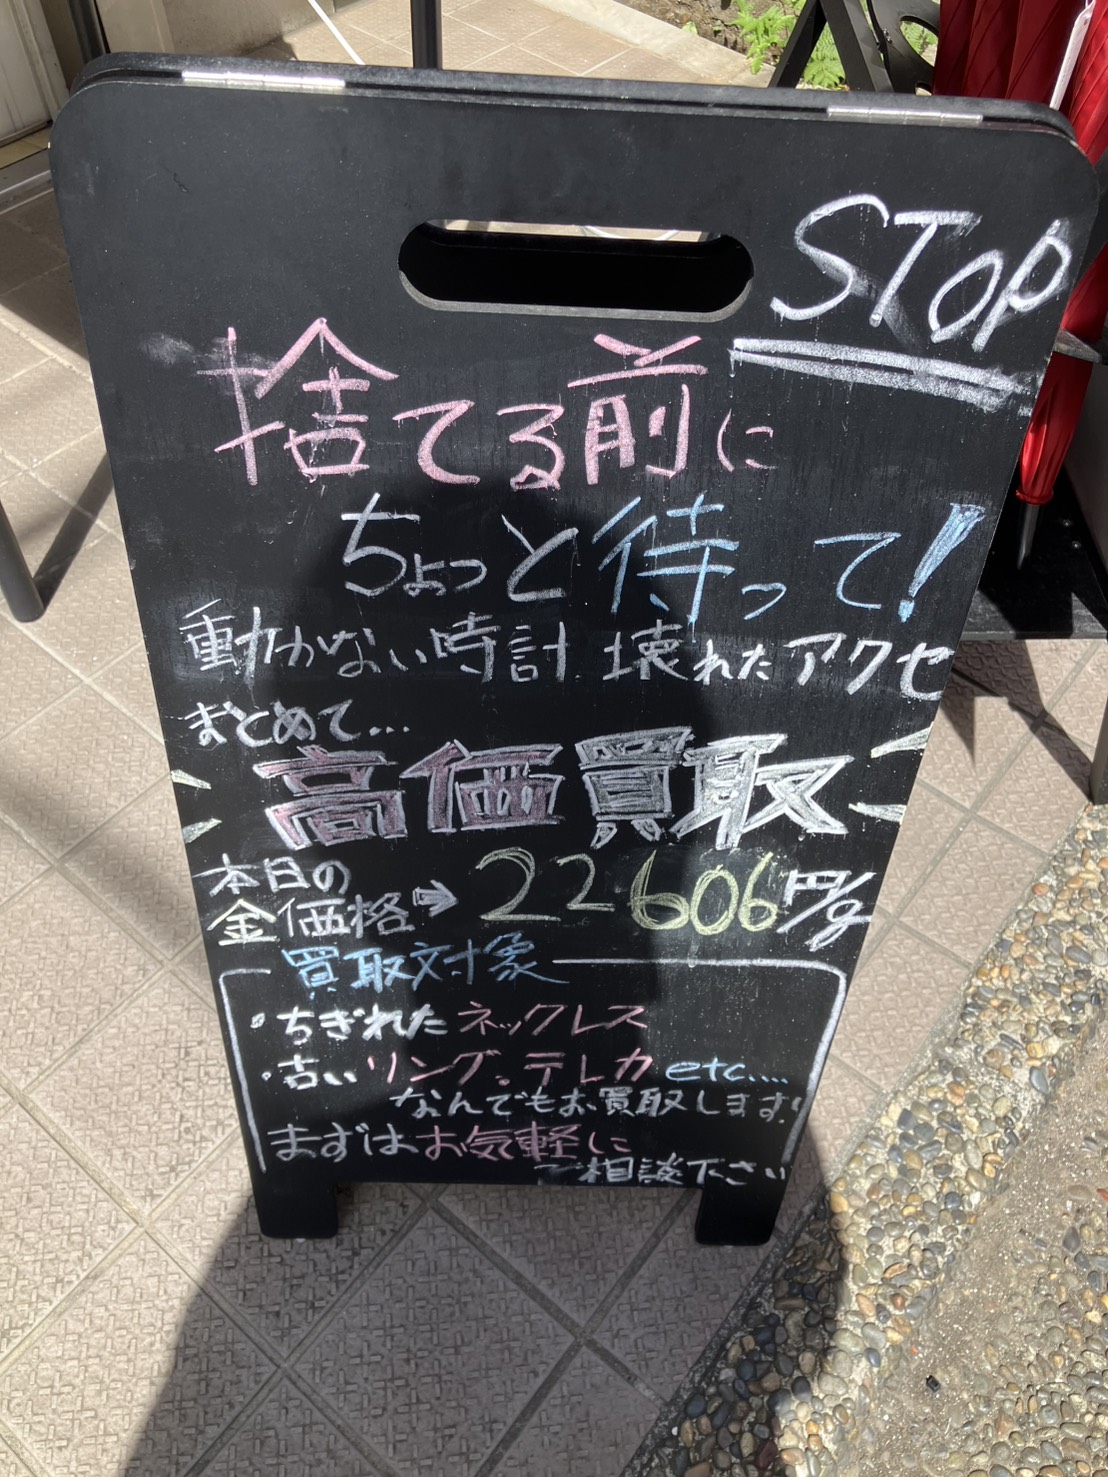 STOP
捨てる前に
ちょっと待って!
動かない時計 壊れたアクセ
まとめて...
高価買取
本日の
金価格→22606円/g
買取対象
・ちぎれたネックレス
・古いリング・テレカ etc....
なんでもお買取します!
まずはお気軽に
ご相談下さい